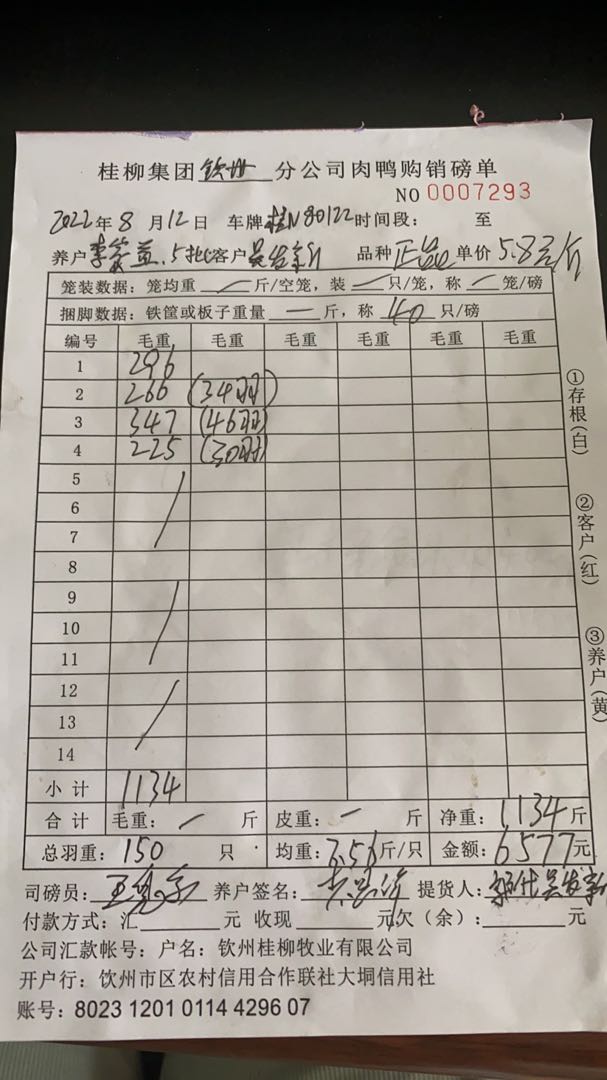 桂柳集团 钦州 分公司肉鸭购销磅单
NO 0007293
2022年8月12日 车牌桂N80122时间段： 至
养户 .5批 客户 吴发新 品种 正品 单价 5.8元/斤
笼装数据：笼均重 — 斤/空笼，装 — 只/笼，称 — 笼/磅
捆脚数据：铁筐或板子重量 — 斤，称 40 只/磅
编号 毛重 毛重 毛重 毛重 毛重 毛重
1 296
2 266 (34羽)
3 347 (46羽)
4 225 (30羽)
5
6
7
8
9
10
11
12
13
14
小计 1134
合计 毛重： — 斤 皮重： — 斤 净重：1134斤
总羽重：150 只 均重：7.56斤/只 金额：6577元
司磅员： 养户签名： 提货人： 吴发新
付款方式：汇 元 收现 元欠（余）： 元
公司汇款帐号：户名：钦州桂柳牧业有限公司
开户行：钦州市区农村信用合作联社大垌信用社
账号：8023 1201 0114 4296 07
①存根(白)
②客户(红)
③养户(黄)